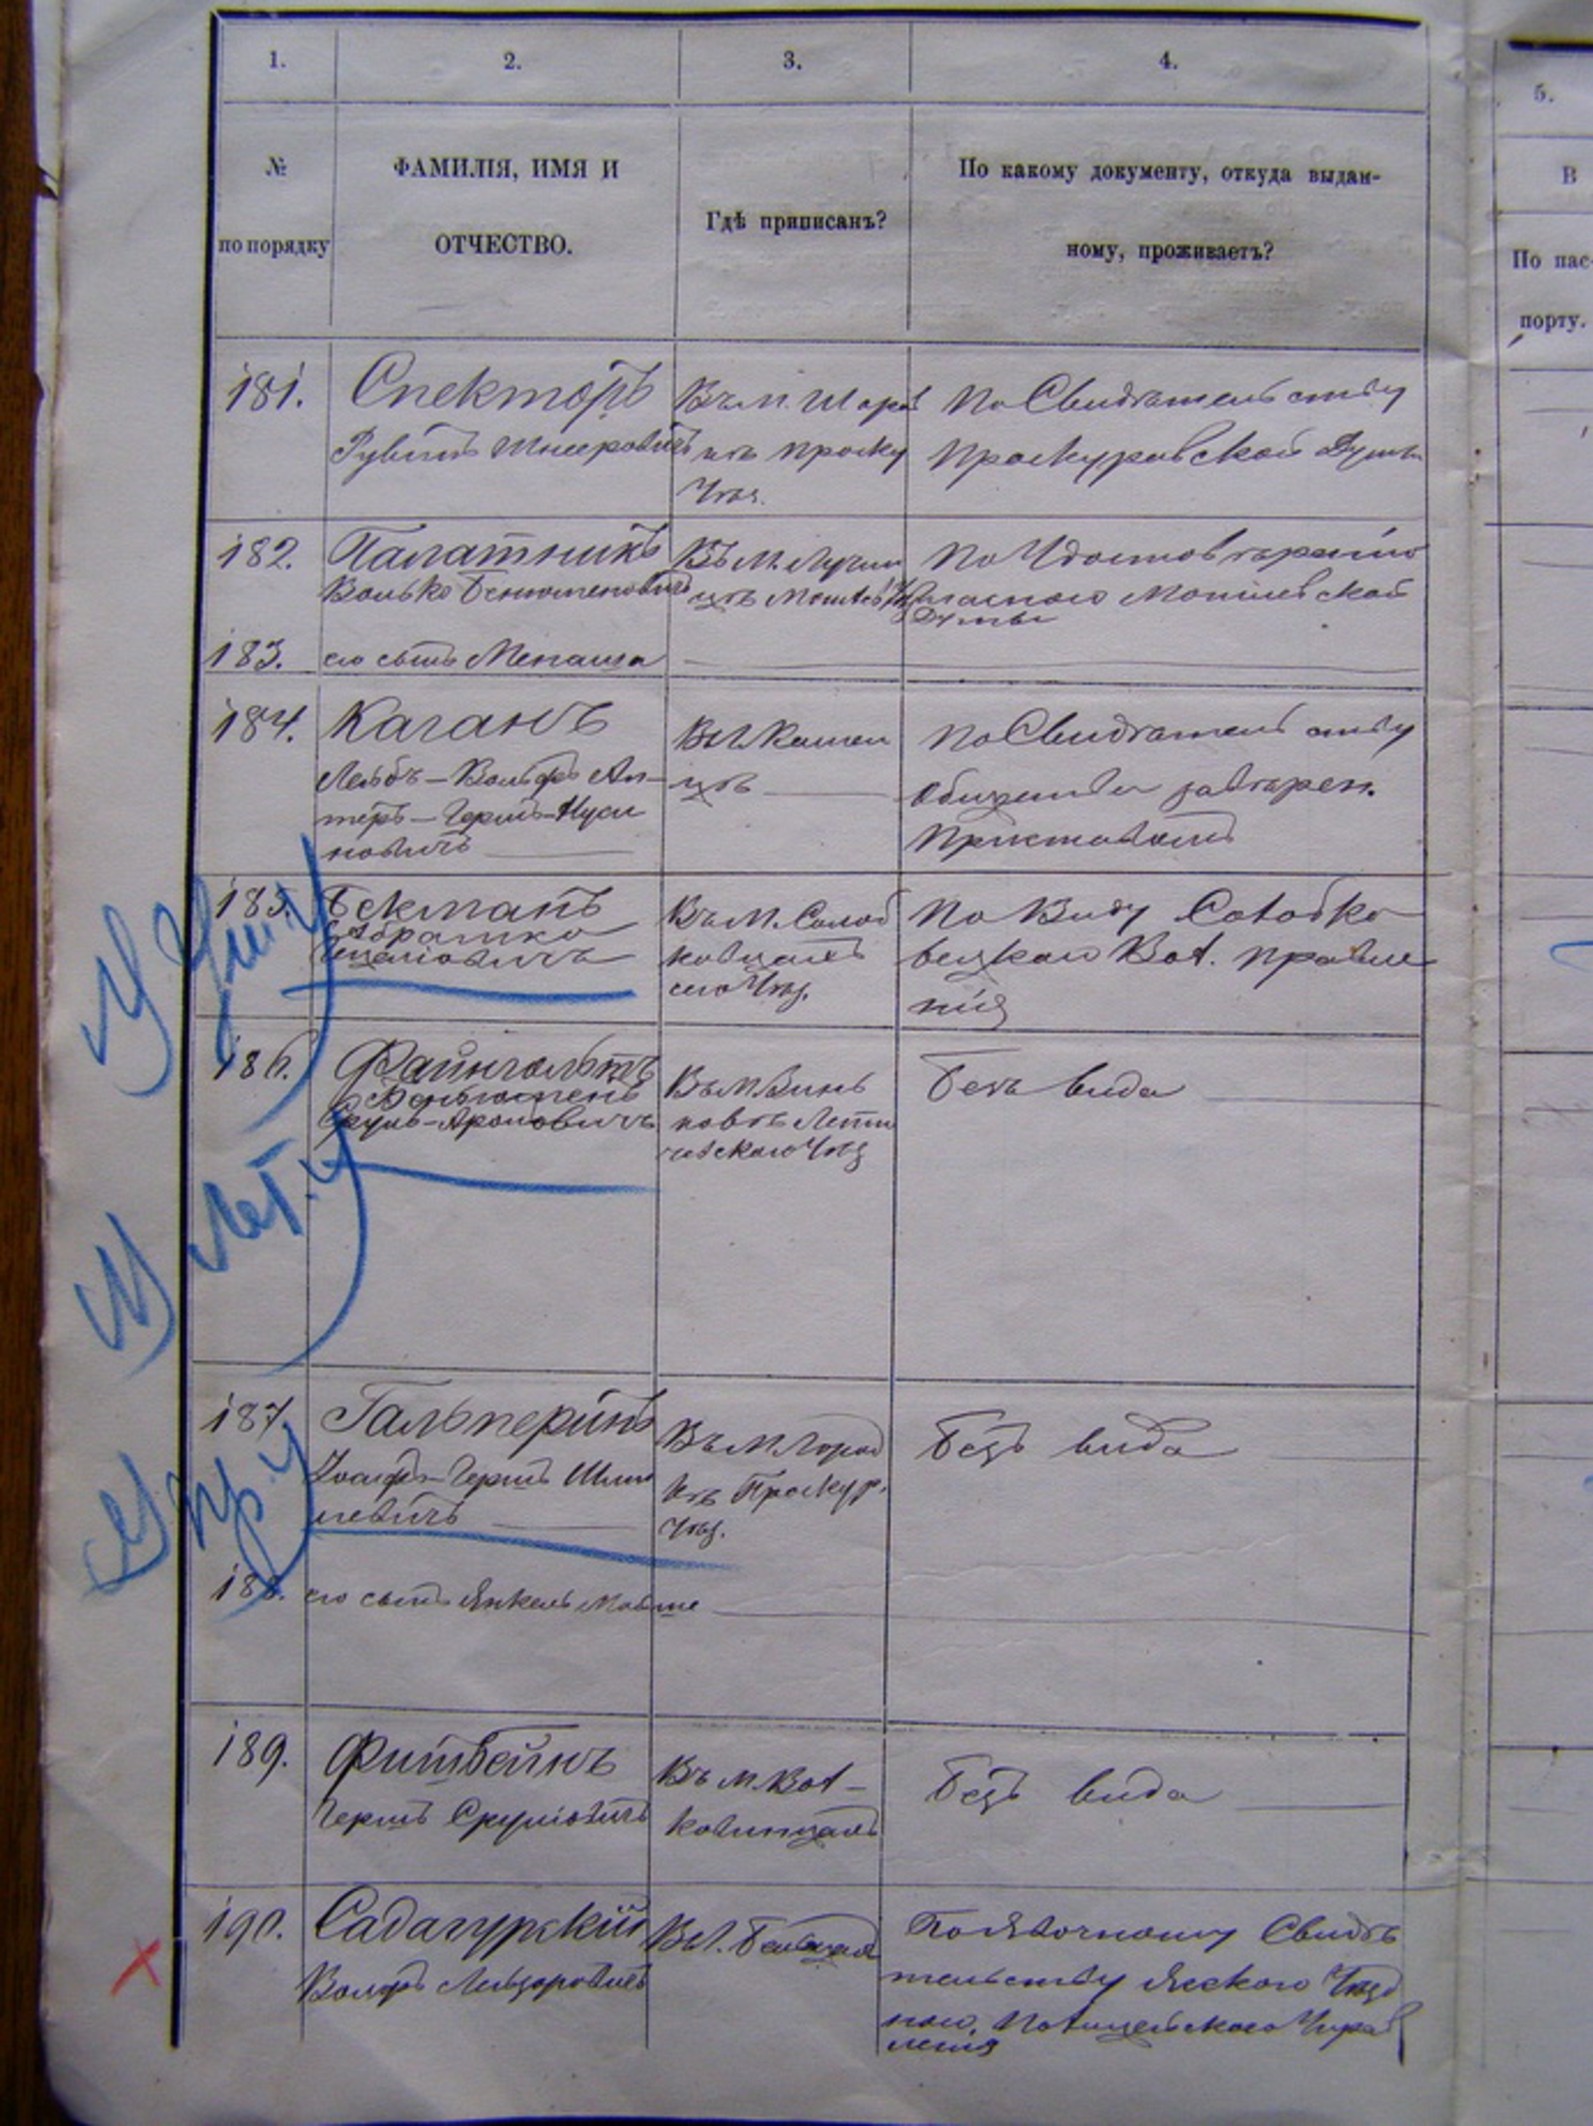 1.
2.
3.
4.
5.
№
по порядку
ФАМИЛІЯ, ИМЯ И
ОТЧЕСТВО.
Гдѣ приписанъ?
По какому документу, откуда выдан-
ному, проживаетъ?
В
По пас-
порту.
181.
Спекторъ
Рувинъ Шнееровичъ
Въ м. Шаров
кѣ Проску
Уѣз.
По Свидѣтельству
Проскуровской Думы
182.
Палатникъ
Волько Беньюменовичъ
Въ м. Лучин
цѣ
По Удостовѣренію
Могилевской
Думы
183.
его сынъ Менаша
184.
Каганъ
Лейбъ-Вольфъ Ал-
теръ-Гершъ-Нуси
новичъ
Въ г. Камен
цѣ
По Свидѣтельству
Общества завѣрен.
Приставомъ
185.
Бекманъ
Абрашко
Въ м. Солоб
ковцахъ
Уѣз.
По Виду Солобко
вецкаго Вол. Правле
нія
У Уш. у
186.
Файнгольтъ
Беньюменъ
Сруль-Ароновичъ
Въ м. Винь
ковцѣ Лети
чевскаго Уѣз
Безъ вида
У Лет. у
187.
Гальперинъ
Іосифъ-Гершъ Шмы
левичъ
Въ м. Город
кѣ Проскур.
Уѣз.
Безъ вида
У Пр. у
188.
его сынъ Янкель Мойше
189.
Фитбейнъ
Гершъ Сруліовичъ
Въ м. Вол-
ковинцахъ
Безъ вида
190.
Садагурскій
Вольфъ Лейзоровичъ
Въ г. Бельцахъ
По Явочному Свидѣ
тельству Ясскаго Уѣзд
наго Полицейскаго Управ
ленія